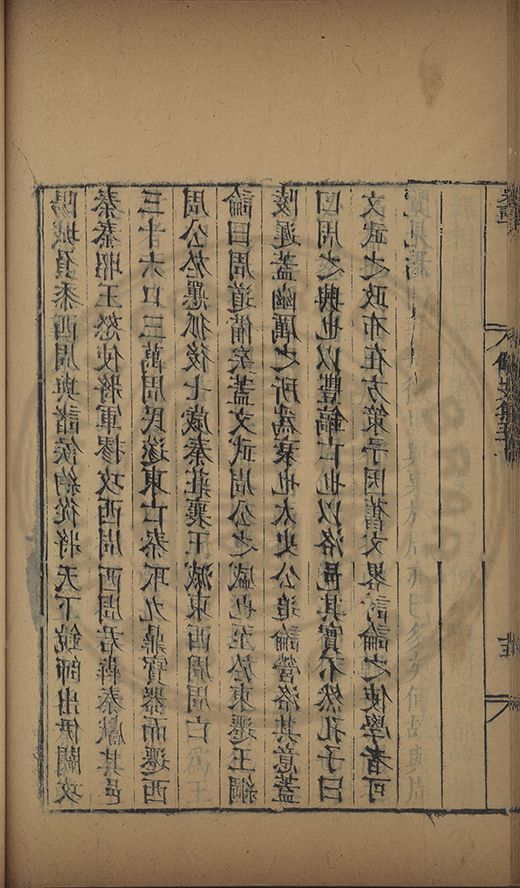 陽城負黍西周與諸侯約從將天下銳師出伊闕攻
秦秦昭王怒使將軍摎攻西周西周君犇秦獻其邑
三十六口三萬周民遂東亡秦取九鼎寶器而遷西
周公於狐後七歲秦莊襄王滅東西周周亡
論曰周道備矣蓋文武周公之盛也至於東遷王綱
陵遲蓋幽厲之所爲衰也太史公追論營洛其意蓋
曰周之興也以豐鎬亡也以洛邑其實不然孔子曰
文武之政布在方策予因舊文畧討論之使學者可